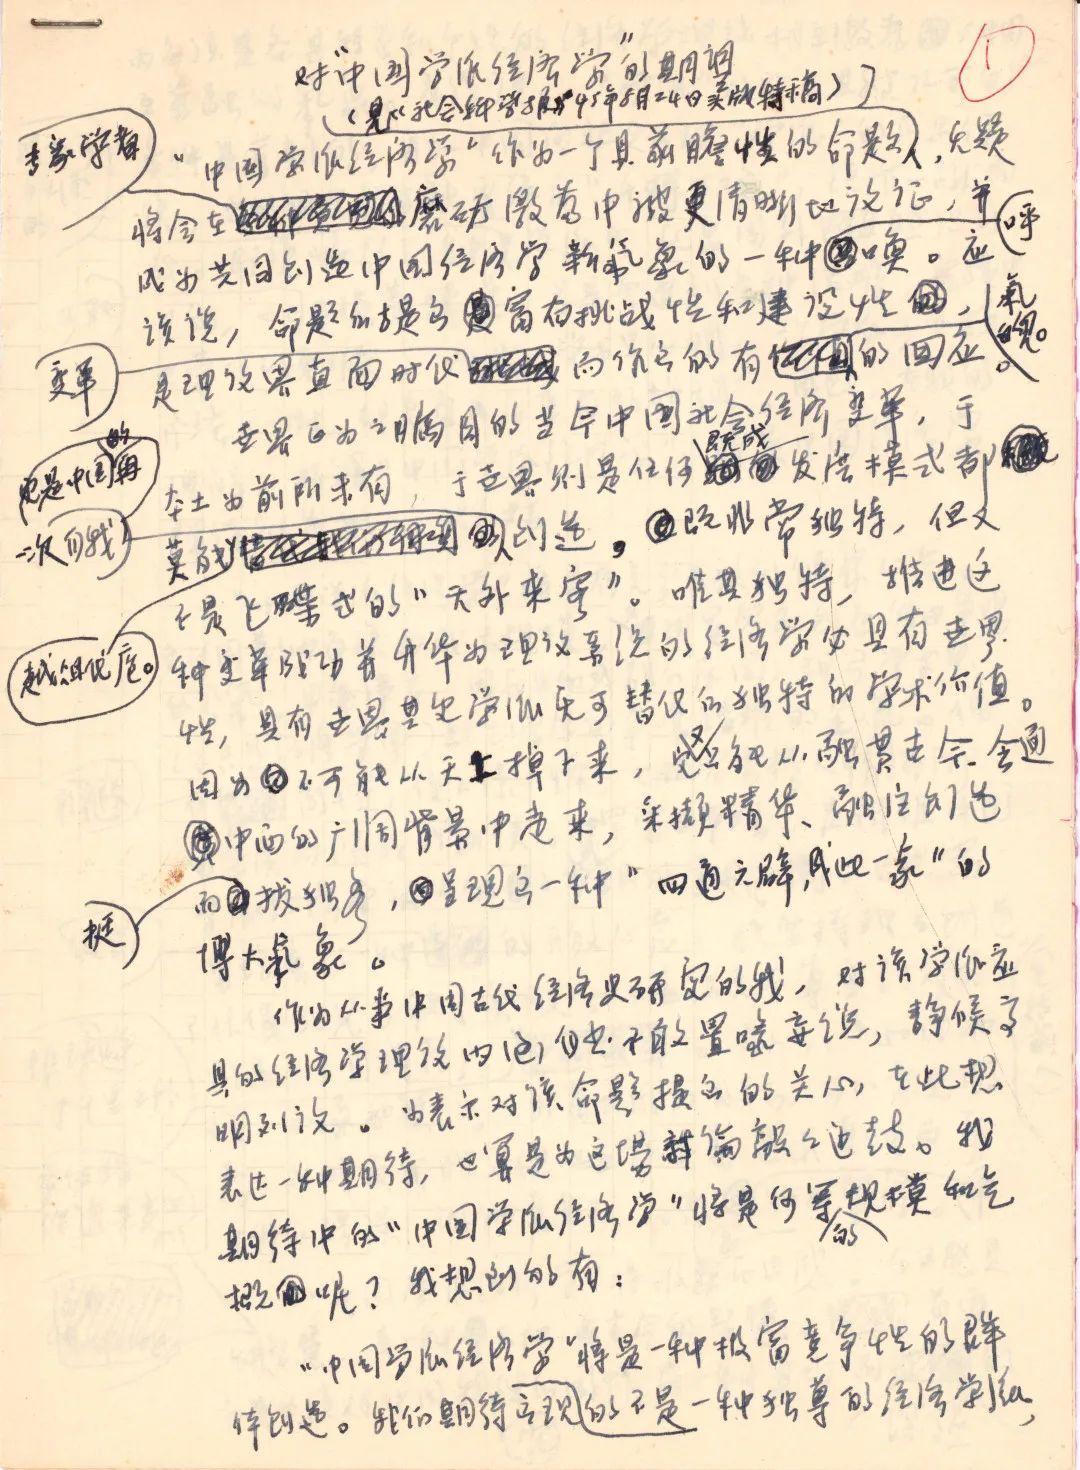 ①
对"中国学派经济学"的期调
(见《社会科学报》95年8月24日头版特稿)
"中国学派经济学"作为一个具前瞻性的命题,无疑
专家学者
将会在磨研激荡中被更清晰地论证,并
成为共同创造中国经济学新气象的一种唤。应
呼
该说,命题的提出富有挑战性和建设性,
气的
变革
是理论界直面时代而作出的有的回应。
世界正为之瞩目的当今中国社会经济变革,于
也是中国的再
本土为前所未有,于世界则是任何既成发展模式都
一次自我
莫能创造。既非常独特,但又
不是飞碟式的"天外来客"。唯其独特,推进这
越俎代庖。
种变革成功并升华为理论系统的经济学必具有世界
性,具有世界其它学派无可替代的独特的学术价值。
因为不可能从天上掉下来,它又只能从融贯古今、会通
中西的广阔背景中走来,采撷精华、融注创造
而拔独秀,呈现出一种"四通六辟,成此一家"的
挺
博大气象。
作为从事中国古代经济史研究的我,对该学派应
具的经济学理论内涵自也不敢置喙妄说,静候高
明列论。为表示对该命题提出的关心,在此想
表达一种期待,也算是为这场讨论敲敲边鼓。我
期待中的"中国学派经济学"将是何等的规模和气
概呢?我想到的有:
"中国学派经济学"将是一种极富竞争性的群
体创造。我们期待出现的不是一种独尊的经济学派,